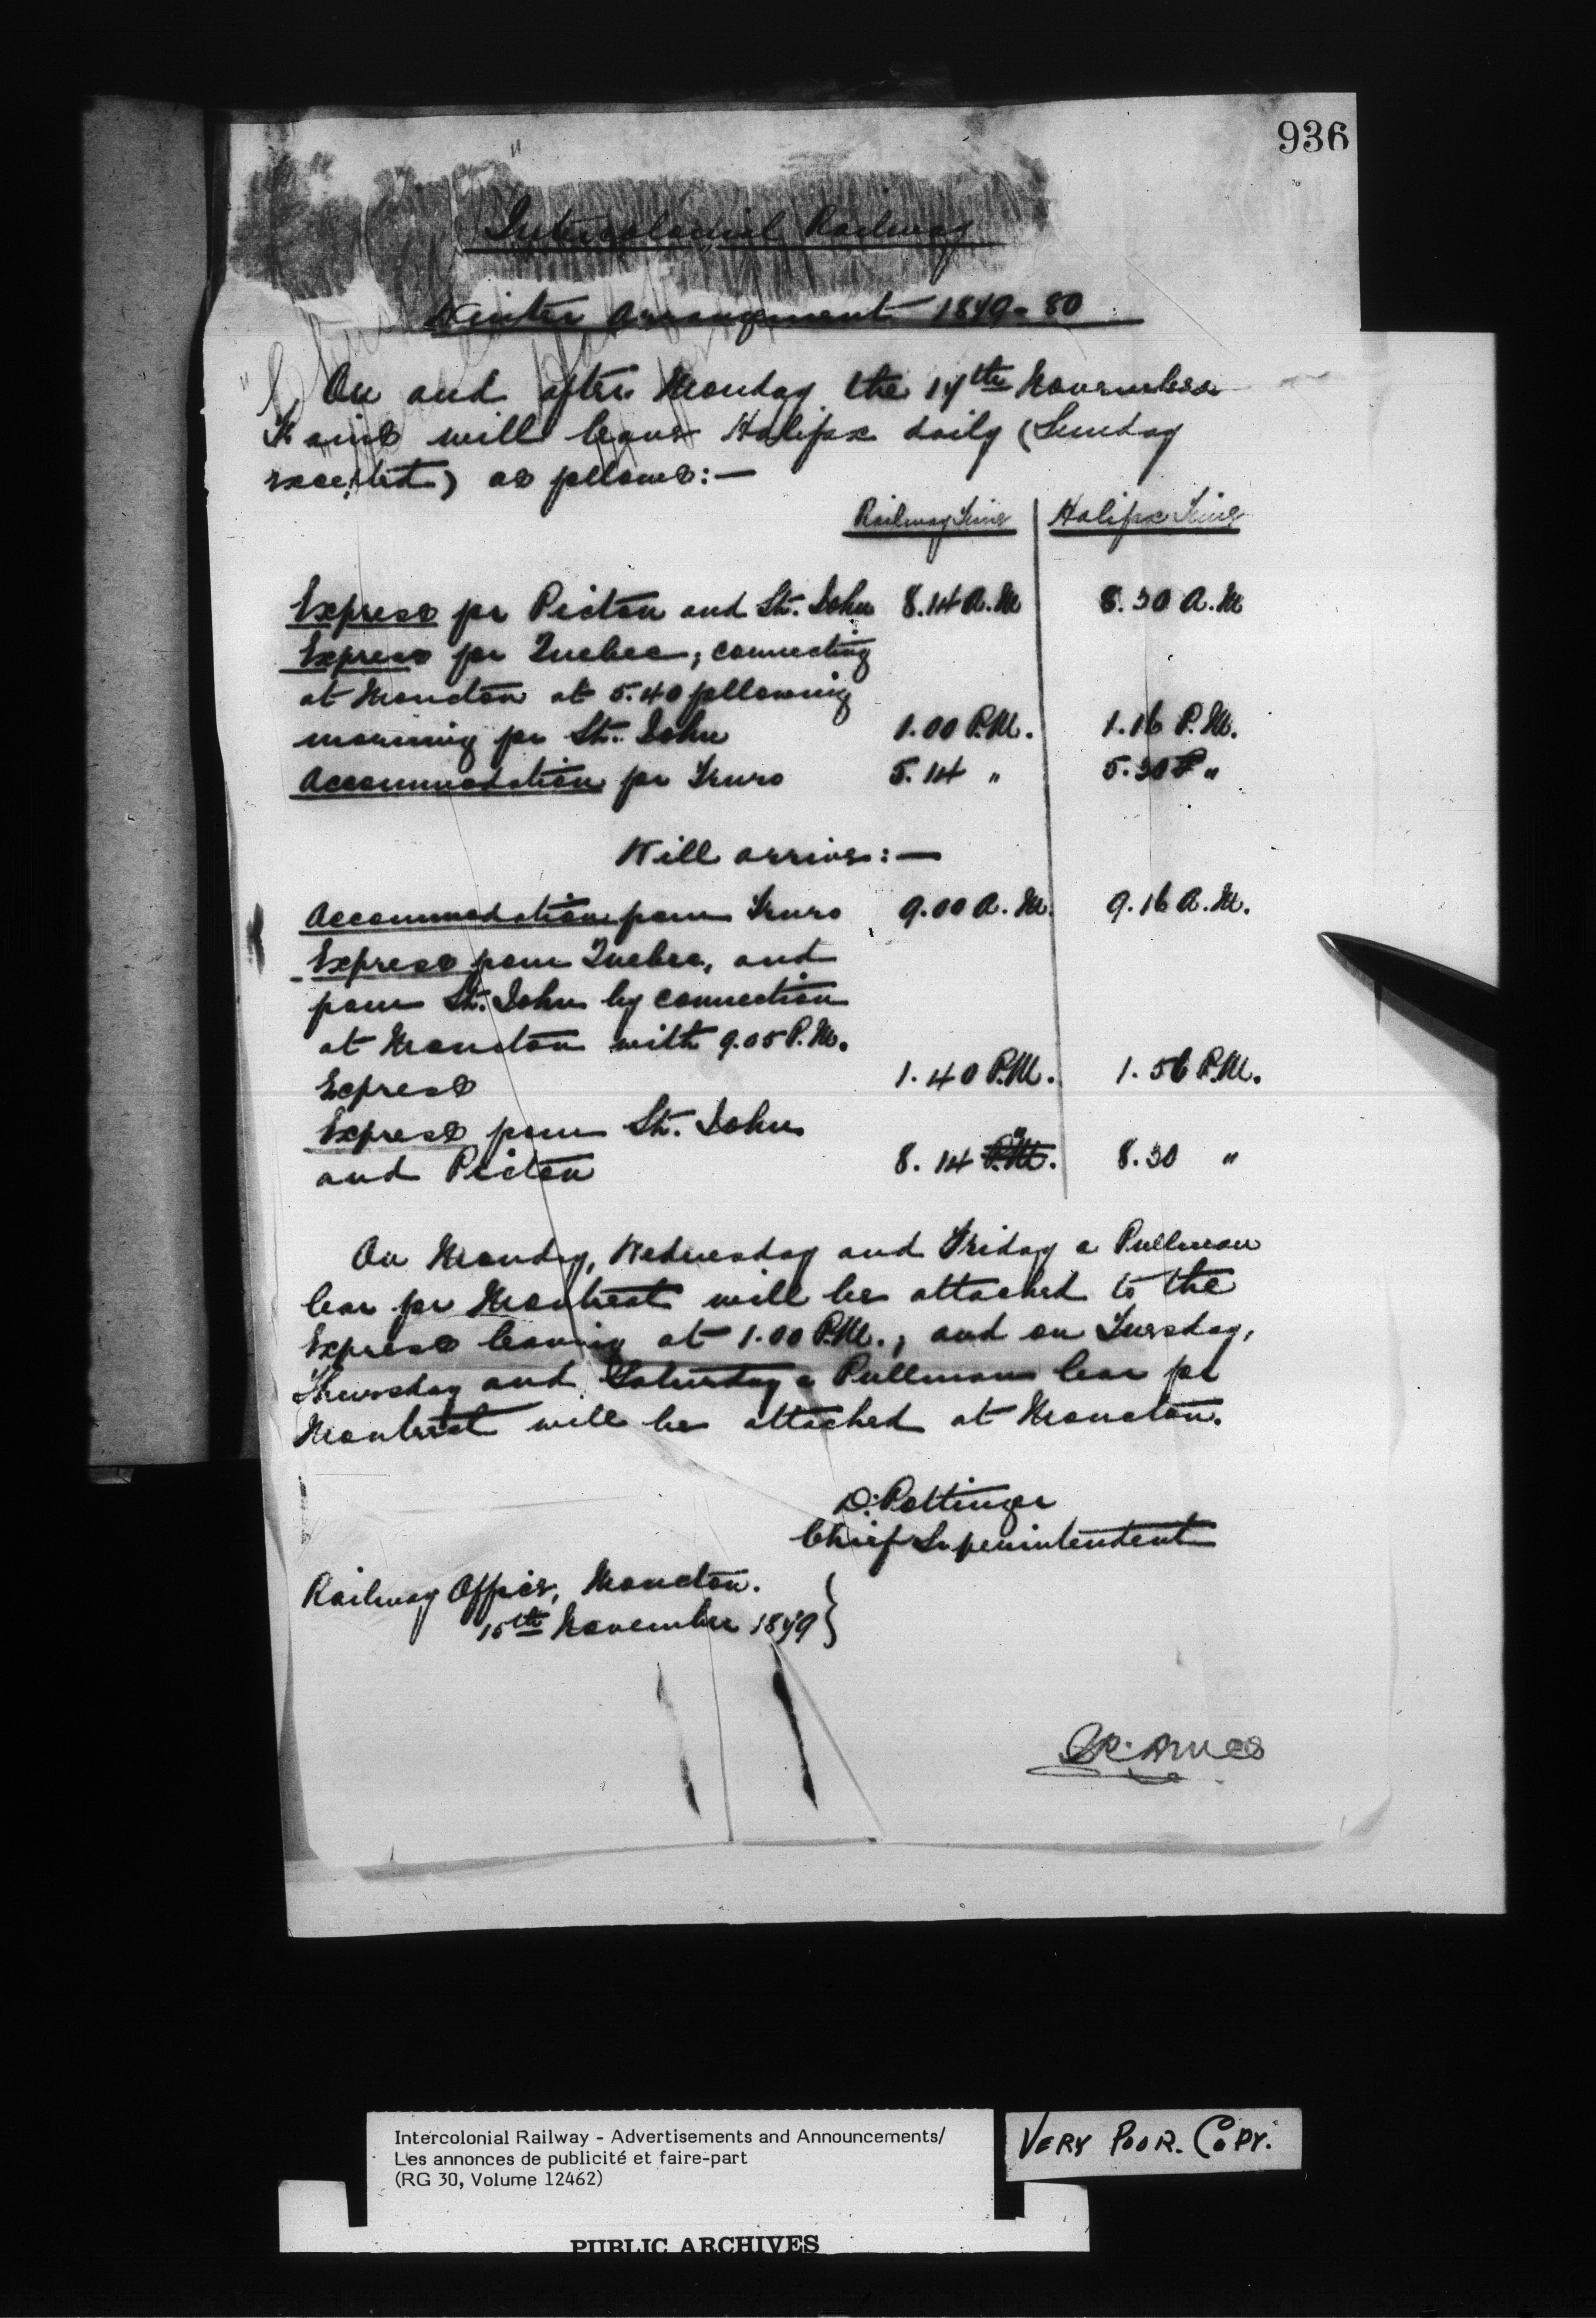 936
Intercolonial Railway
Winter Arrangement 1879-80
On and after Monday the 17th November
Trains will leave Halifax daily (Sunday
excepted) as follows:—
Railway Time Halifax Time
Express for Pictou and St. John 8.14 A.M 8.30 A.M
Express for Quebec, connecting
at Moncton at 5.40 following
morning for St. John 1.00 P.M. 1.16 P.M.
Accommodation for Truro 5.14 " 5.30 "
Will arrive:—
Accommodation from Truro 9.00 A.M. 9.16 A.M.
Express from Quebec, and
from St. John by connection
at Moncton with 9.05 P.M.
Express 1.40 P.M. 1.56 P.M.
Express from St. John
and Pictou 8.14 P.M. 8.30 "
On Monday, Wednesday and Friday a Pullman
Car for Montreal will be attached to the
Express leaving at 1.00 P.M., and on Tuesday,
Thursday and Saturday a Pullman Car for
Montreal will be attached at Moncton.
D. Pottinger
Chief Superintendent
Railway Office, Moncton.
15th November 1879
Intercolonial Railway - Advertisements and Announcements/
Les annonces de publicité et faire-part
(RG 30, Volume 12462)
VERY POOR. COPY.
PUBLIC ARCHIVES